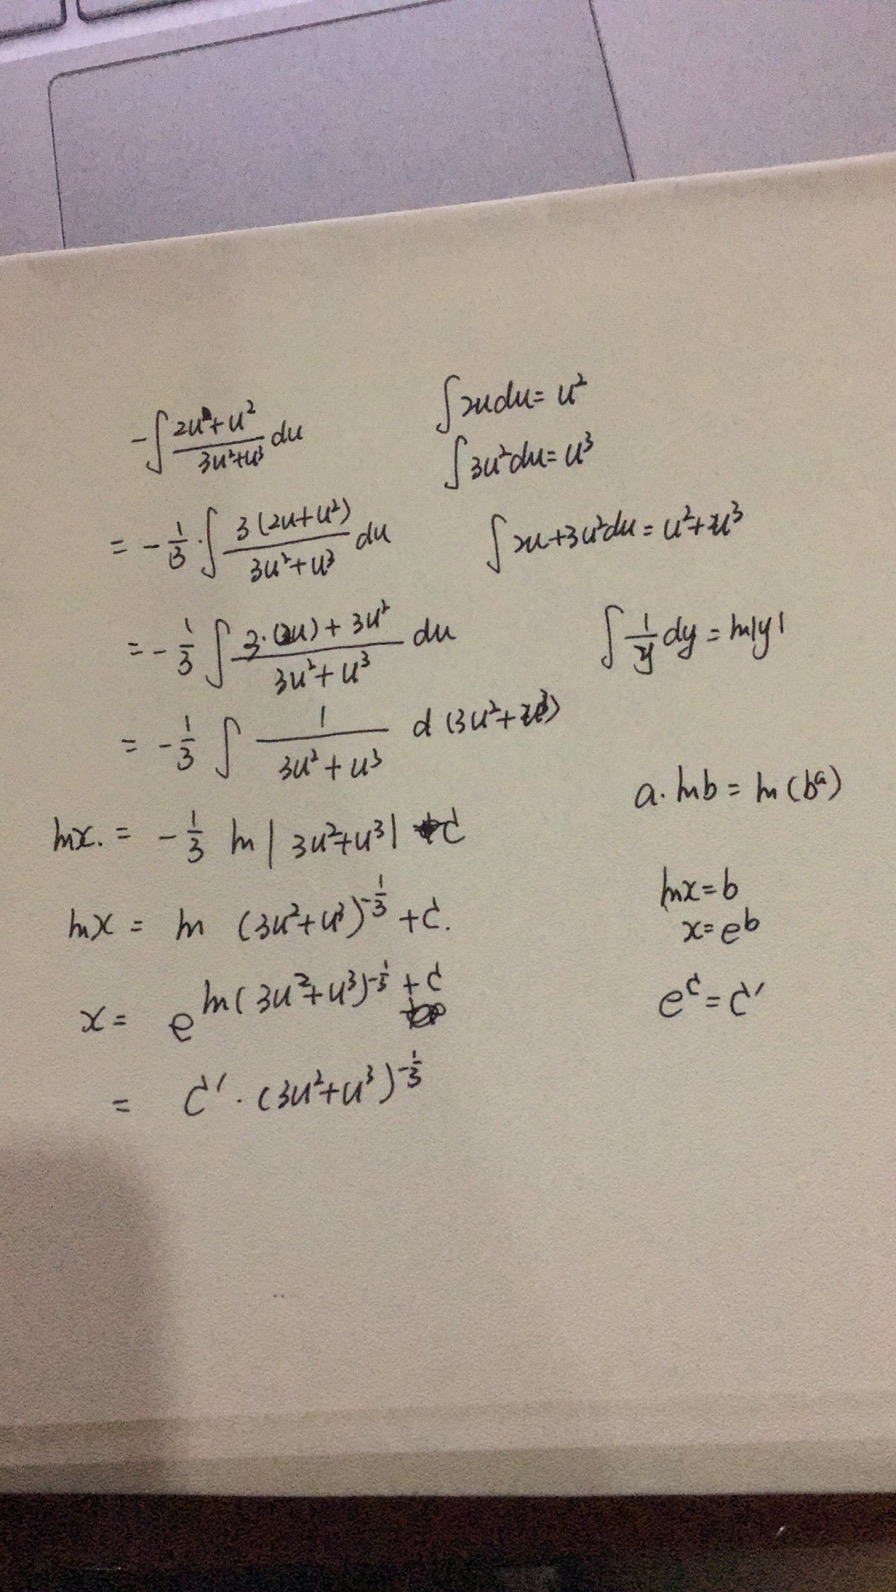 -∫ (2u+u²)/(3u²+u³) du
∫2udu = u²
∫3u²du = u³
= -1/3 · ∫ 3(2u+u²)/(3u²+u³) du
∫2u+3u²du = u²+u³
= -1/3 ∫ (3·(2u)+3u²)/(3u²+u³) du
∫ 1/y dy = ln|y|
= -1/3 ∫ 1/(3u²+u³) d(3u²+u³)
a·lnb = ln(bᵃ)
lnx. = -1/3 ln|3u²+u³| +C
lnx = b
lnx = ln (3u²+u³)^(-1/3) +C.
x = e^b
x = e^(ln(3u²+u³)^(-1/3) + C)
e^C = C'
= C' · (3u²+u³)^(-1/3)